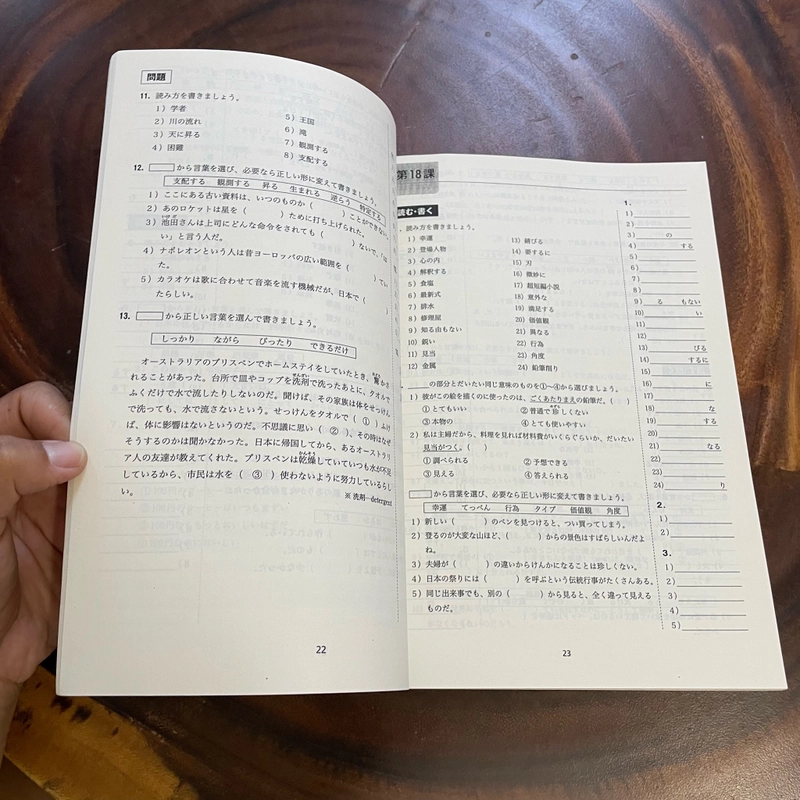 問題
11. 読み方を書きましょう。
1）学者
2）川の流れ
3）天に昇る
4）困難
5）王国
6）滝
7）観測する
8）支配する
12. から言葉を選び、必要なら正しい形に変えて書きましょう。
支配する 観測する 昇る 生まれる 逆らう 特定する
1）ここにある古い資料は、いつのものか（ ）ことができない。
2）あのロケットは星を（ ）ために打ち上げられた。
3）池田さんは上司にどんな命令をされても（ ）ないで、「は
い」と言う人だ。
4）ナポレオンという人は昔ヨーロッパの広い範囲を（ ）てい
た。
5）カラオケは歌に合わせて音楽を流す機械だが、日本で（ ）
たらしい。
13. から正しい言葉を選んで書きましょう。
しっかり ながら ぴったり できるだけ
オーストラリアのブリスベンでホームステイをしていたとき、驚かさ
れることがあった。台所で皿やコップを洗剤で洗ったあとに、タオルで
ふくだけで水で流したりしないのだ。聞けば、その家族は体をせっけん
で洗っても、水で流さないという。せっけんをタオルで（ ① ）ふけ
ば、体に影響はないというのだ。不思議に思い（ ② ）、その時はなぜ
そうするのかは聞かなかった。日本に帰国してから、あるオーストラリ
ア人の友達が教えてくれた。ブリスベンは乾燥していていつも水が不足
しているから、市民は水を（ ③ ）使わないように努力しているらし
い。
※洗剤…detergent
22
第18課
読む・書く
読み方を書きましょう。
1）幸運
2）登場人物
3）心の内
4）解釈する
5）食塩
6）最新式
7）排水
8）修理屋
9）知る由もない
10）鋭い
11）見当
12）金属
13）錆びる
14）要するに
15）刃
16）微妙に
17）超短編小説
18）意外な
19）満足する
20）価値観
21）異なる
22）行為
23）角度
24）鉛筆削り
の部分とだいたい同じ意味のものを①～④から選びましょう。
1）彼がこの絵を描くのに使ったのは、ごくあたりまえの鉛筆だ。（ ）
①とてもいい ②普通で珍しくない
③本物の ④とても使いやすい
2）私は主婦だから、料理を見れば材料費がいくらぐらいか、だいたい
見当がつく。（ ）
①調べられる ②予想できる
③見える ④答えられる
から言葉を選び、必要なら正しい形に変えて書きましょう。
幸運 てっぺん 行為 タイプ 価値観 角度
1）新しい（ ）のペンを見つけると、つい買ってしまう。
2）登るのが大変な山ほど、（ ）からの景色はすばらしいんだよ
ね。
3）夫婦が（ ）の違いからけんかになることは珍しくない。
4）日本の祭りには（ ）を呼ぶという伝統行事がたくさんある。
5）同じ出来事でも、別の（ ）から見ると、全く違って見える
ものだ。
1.
1）
2）
3） の
4） する
5）
6）
7）
8）
9） る もない
10） い
11）
12）
13） びる
14） するに
15）
16） に
17）
18） な
19） する
20）
21） なる
22）
23）
24） り
2.
1）
2）
3.
1）
2）
3）
4）
5）
23